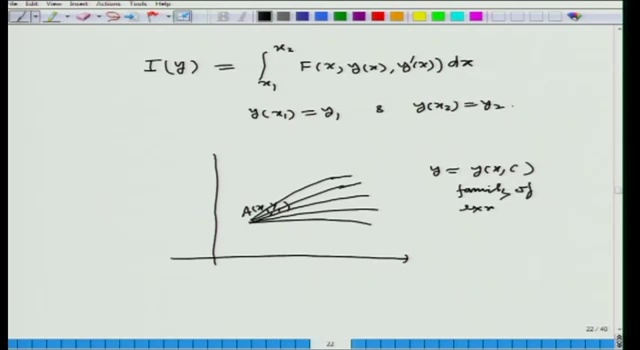 File Edit View Insert Actions Tools Help
I(y) = ∫_{x₁}^{x₂} F(x, y(x), y'(x)) dx
y(x₁) = y₁ & y(x₂) = y₂.
y = y(x, c)
family of
exr
A(x₁, y₁)
22 / 40
22